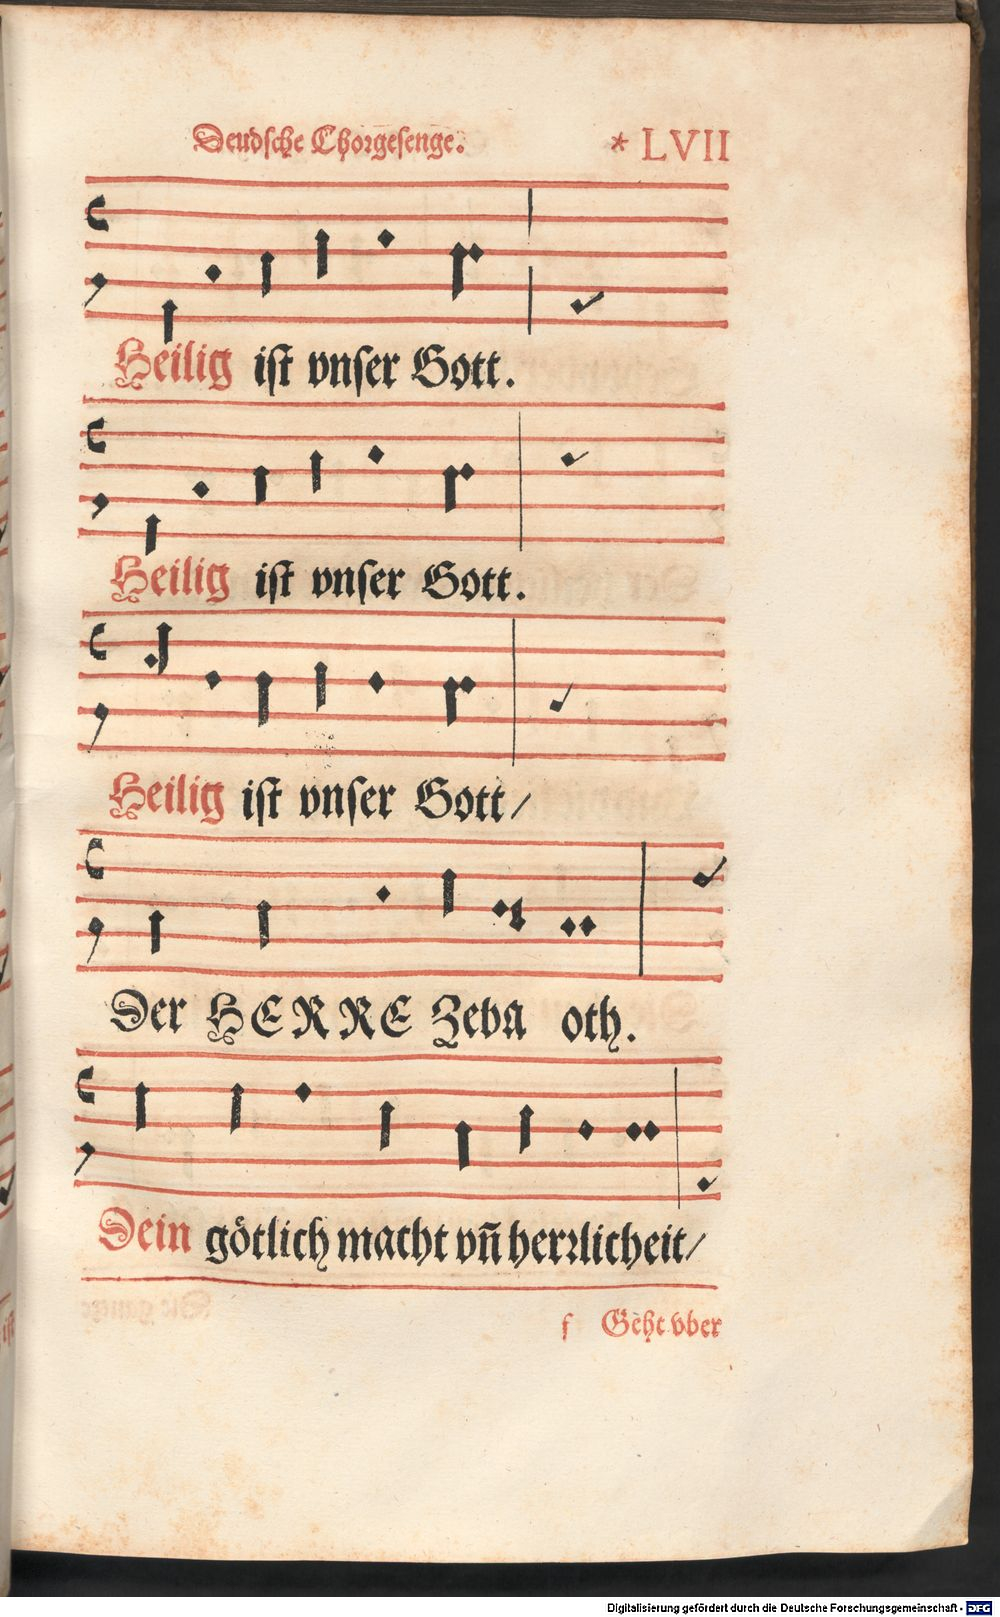 Deudsche Chorgesenge. * LVII
Heilig ist vnser Gott.
Heilig ist vnser Gott.
Heilig ist vnser Gott/
Der HERRE Zeba oth.
Dein götlich macht vñ herꝛlicheit/
f Gehet vber
Digitalisierung gefördert durch die Deutsche Forschungsgemeinschaft - DFG